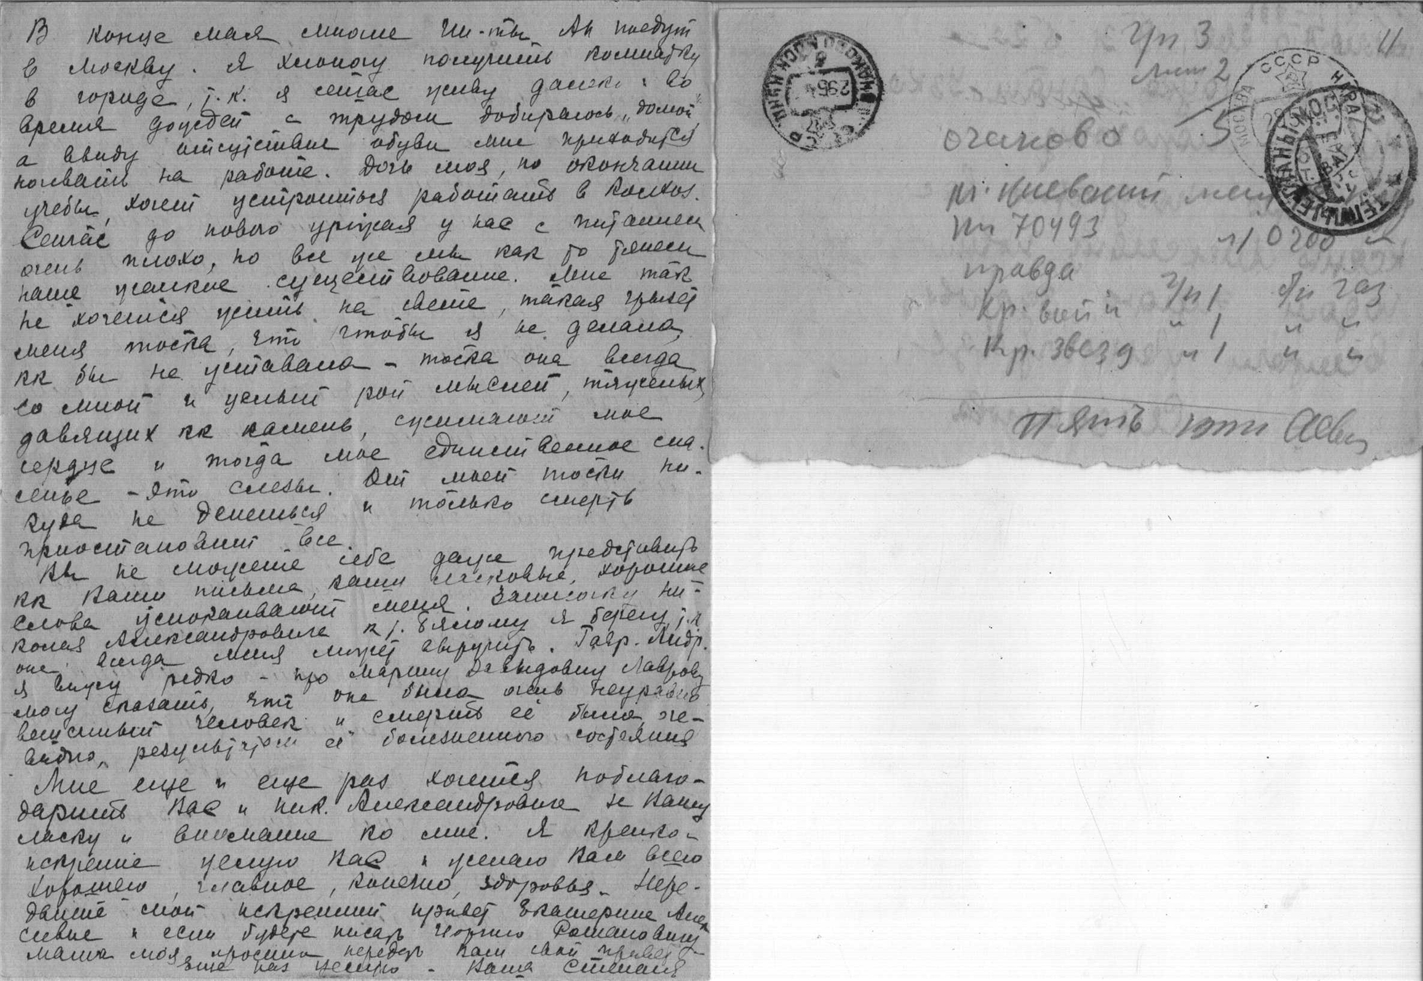 В конце мая многие Ин-ты Ан поедут
в Москву. Я хлопочу получить комнатку
в городе, т.к. я сейчас живу далеко и во
время дождей с трудом добиралась „домой“
а ввиду отсутствия обуви мне приходится
ночевать на работе. Дочь моя, по окончании
учебы, хочет устроиться работать в Колхоз.
Сейчас до нового урожая у нас с питанием
очень плохо, но все же мы как то тянем
наше жалкое существование. Мне так
не хочется жить на свете, такая грызет
меня тоска, что чтобы я не делала,
кк бы не уставала – тоска она всегда
со мной и целый рой мыслей, тяжелых,
давящих кк камень, сжимают мое
сердце и тогда мое единственное спа-
сенье – это слезы. От моей тоски ни-
куда не денешься и только смерть
приостановит все.
Вы не можете себе даже представить
кк Ваши письма, ваши ласковые, хорошие
слова успокаивают меня. Записочку Ни-
колая Александровича к т. Бялому я берегу, т.к
она всегда меня может выручить. Гавр. Андр.
я вижу редко – про Марину Давыдовну Лаврову
могу сказать, что она была очень неуравно
вешенный человек и смерть её была, оче-
видно, результатом её болезненного состояния
Мне еще и еще раз хочется поблаго-
дарить Вас и Ник. Александровича за Вашу
ласку и внимание ко мне. Я крепко-
искренне целую Вас и желаю Вам всего
хорошего, главное, конечно, здоровья. Пере-
дайте мой искренний привет Екатерине Алек
сеевне и если будете писать Георгию Романовичу
Мама моя просила передать Вам свой привет
Еще раз целую – Ваша Стефания
Уп 3
лит 2
СССР
МОСКВА
очаково 5
п. Киевский
пп 70493 0200
правда Уп 1 бп газ
Кр. воин " 1 " "
Кр. звезд " 1 " "
пять